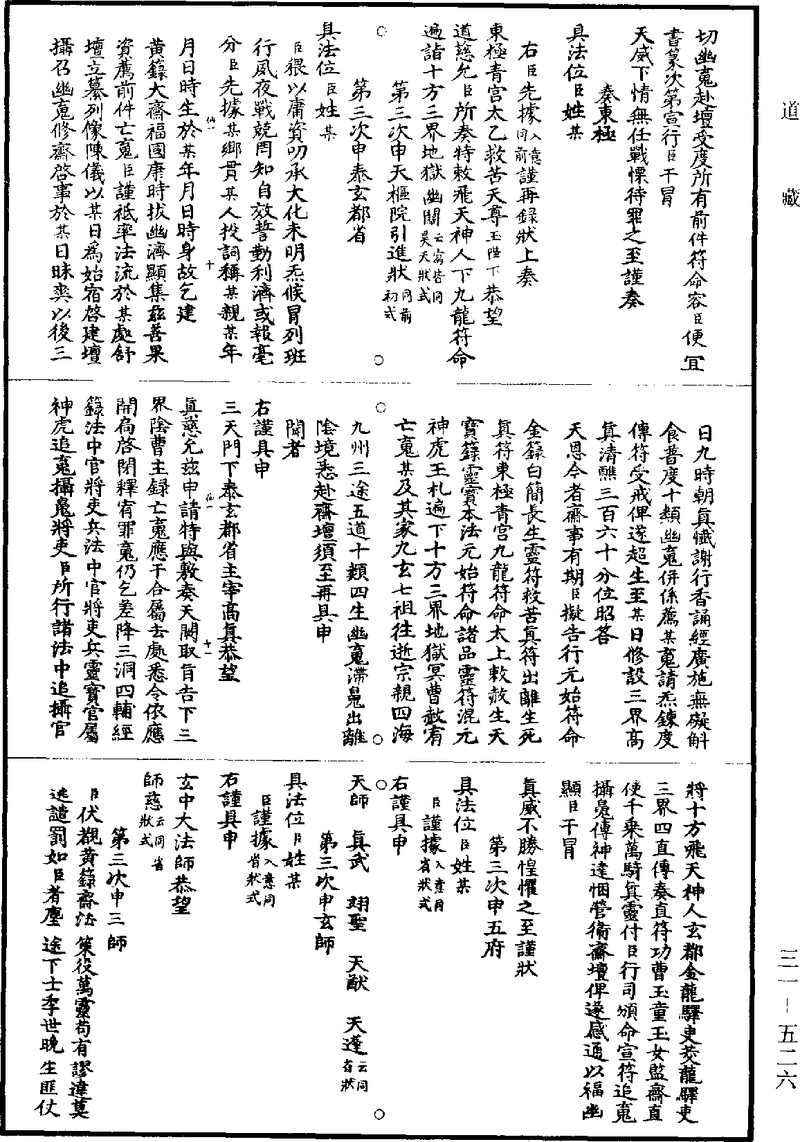 道藏
切幽䰟赴壇受度所有前件符命容臣便宜
書篆次第宣行臣干冒
天威下情無任戰慄待罪之至謹奏
奏東極
具法位臣姓某
右臣先據入意同前謹再録狀上奏
東極青宫太乙救苦天尊玉陛下恭望
道慈允臣所奏特敕飛天神人下九龍符命
遍詣十方三界地獄幽關云云皆同昊天狀式
第三次申天樞院引進狀同前初式
第三次申泰玄都省
具法位臣姓某
臣猥以庸資叨承大化未明炁候冒列班
行夙夜戰兢罔知自效誓勤利濟或報毫
分臣先據某鄉貫某人投詞稱某親某年
月日時生於某年月日時身故乞建
黄籙大齋福國康時拔幽濟顯集兹善果
資薦前件亡䰟臣謹祗率法流於某處舒
壇立纂列像陳儀以某日爲始宿啓建壇
攝召幽䰟修齋啓事於某日昧爽以後三
日九時朝真懺謝行香誦經廣施無礙斛
食普度十類幽䰟併係薦某䰟請炁鍊度
傳符受戒俾遂超生至某日修設三界高
真清醮三百六十分位昭答
天恩令者齋事有期臣擬告行元始符命
金籙白簡長生靈符救苦真符出離生死
真符東極青宫九龍符命太上敕赦生天
寶籙靈寶本法元始符命諸品靈符混元
神虎玉札遍下十方三界地獄冥曹赦宥
亡䰟某及其家九玄七祖往逝宗親四海
九州三途五道十類四生幽䰟滯魄出離
陰境悉赴齋壇須至再具申
聞者
右謹具申
三天門下泰玄都省主宰高真恭望
真慈允兹申請特與敷奏天闕取旨告下三
界陰曹主録亡䰟應干合屬去處悉令依應
開扃啓閉釋宥罪䰟仍乞差降三洞四輔經
籙法中官將吏兵法中官將吏兵靈寶官屬
神虎追䰟攝魄將吏臣所行諸法中追攝官
將十方飛天神人玄都金龍驛吏茭龍驛吏
三界四直傳奏直符功曹玉童玉女監齋直
使千乘萬騎真靈付臣行司頒命宣符追䰟
攝魄傳神達悃營衛齋壇俾遂感通以福幽
顯臣干冒
真威不勝惶懼之至謹狀
第三次申五府
具法位臣姓某
臣謹據入意同省狀式
右謹具申
天師　真武　翊聖　天猷　天蓬云同省狀
第三次申玄師
具法位臣姓某
臣謹據入意同省狀式
右謹具申
玄中大法師恭望
師慈云同省狀式
第三次申三師
臣伏覩黄籙齋法策役萬靈苟有謬違莫
逃譴罰如臣者塵途下士季世晚生匪仗
三一－五二六